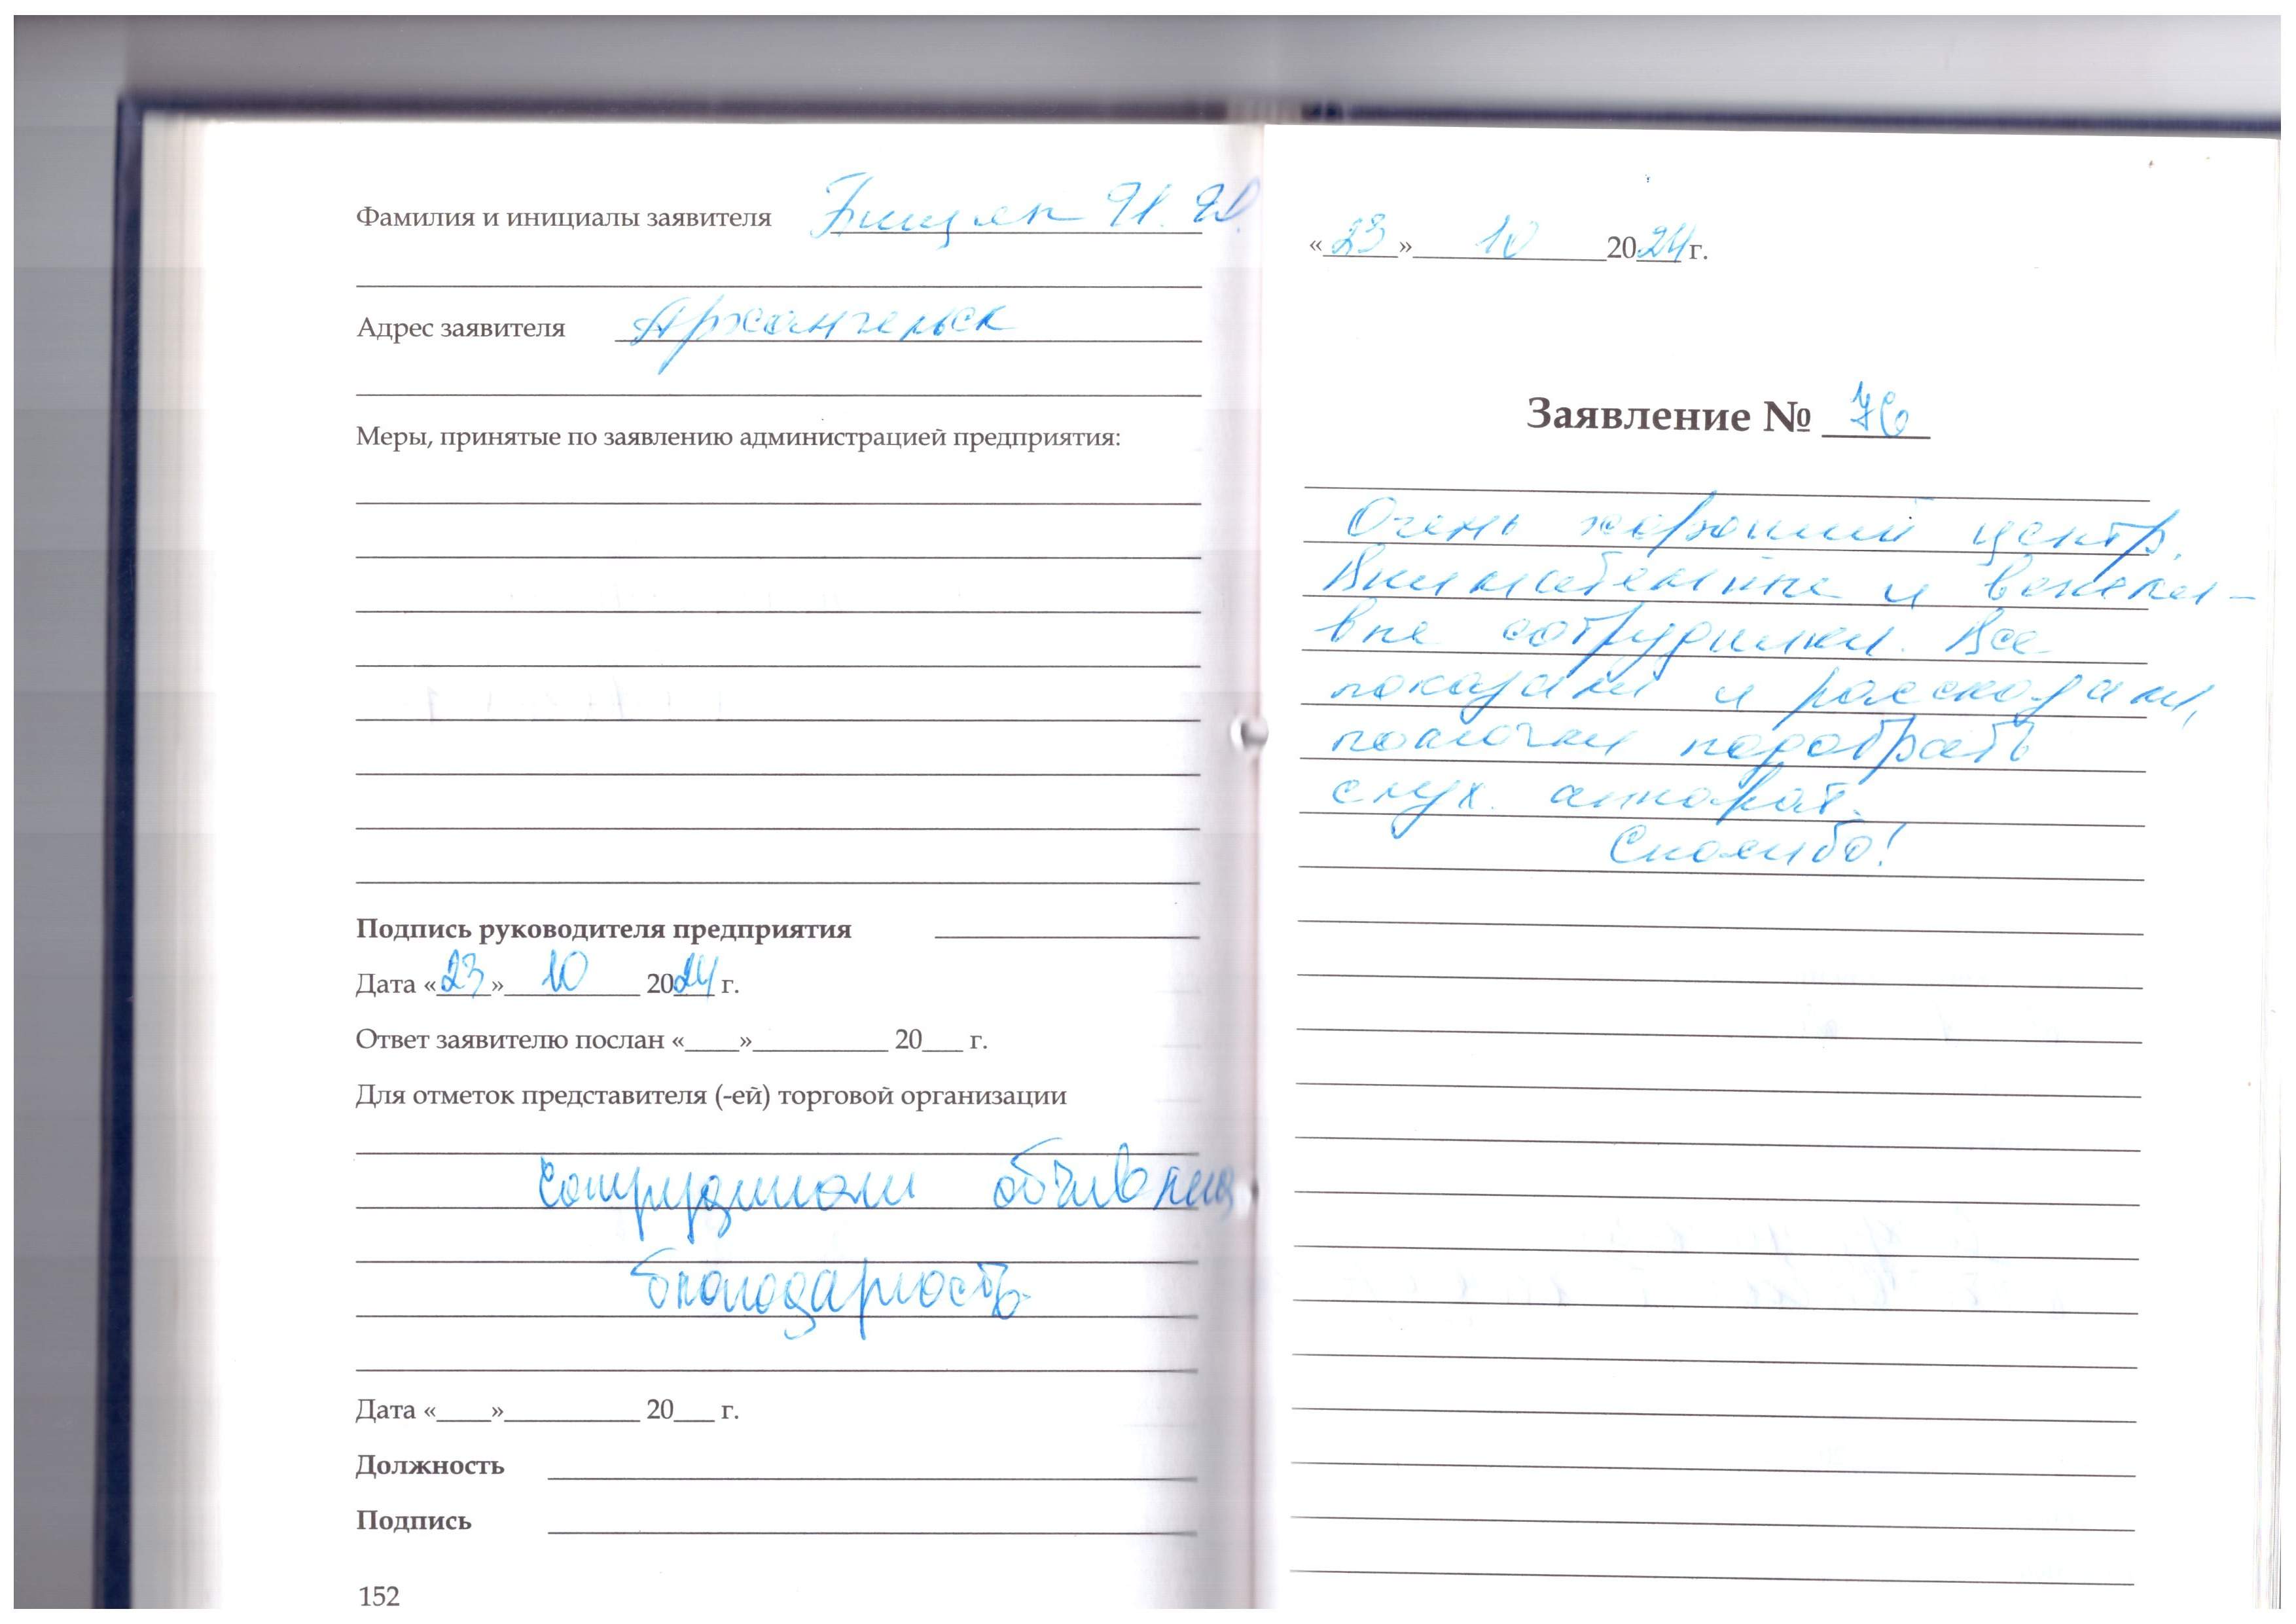 Фамилия и инициалы заявителя
Адрес заявителя Архангельск
Меры, принятые по заявлению администрацией предприятия:
Подпись руководителя предприятия
Дата «23» 10 2024 г.
Ответ заявителю послан «____»__________ 20___ г.
Для отметок представителя (-ей) торговой организации
сотрудникам объявлена
благодарность
Дата «____»__________ 20___ г.
Должность
Подпись
152
«23» 10 2024 г.
Заявление № 76
Очень хороший центр.
Внимательные и вежли-
вые сотрудники. Все
показали и рассказали,
помогли подобрать
слух. аппарат.
Спасибо!